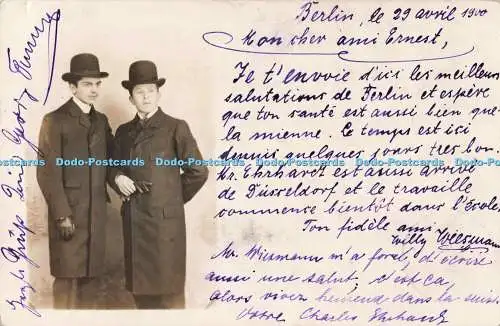 Berlin, le 29 avril 1900
Mon cher ami Ernest,
Je t'envoie d'ici les meilleures
salutations de Berlin et espère
que ton santé est aussi bien que
la mienne. Le temps est ici
depuis quelques jours très bon.
Mr. Ehrhardt est aussi arrivé
de Düsseldorf et le travaille
commence bientôt dans l'école.
Ton fidèle ami
Willy Wiesmann
Mr. Wiesmann m'a forcé, d'écrire
aussi une salut, c'est ça
alors vivez
dans la
Votre Charles Ehrhardt
Georg
Dodo-Postcards Dodo-Postcards Dodo-Postcards Dodo-Postcards Dodo-Postcards